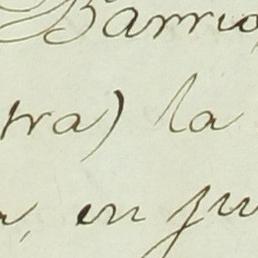 Barrio
tra) la
, en